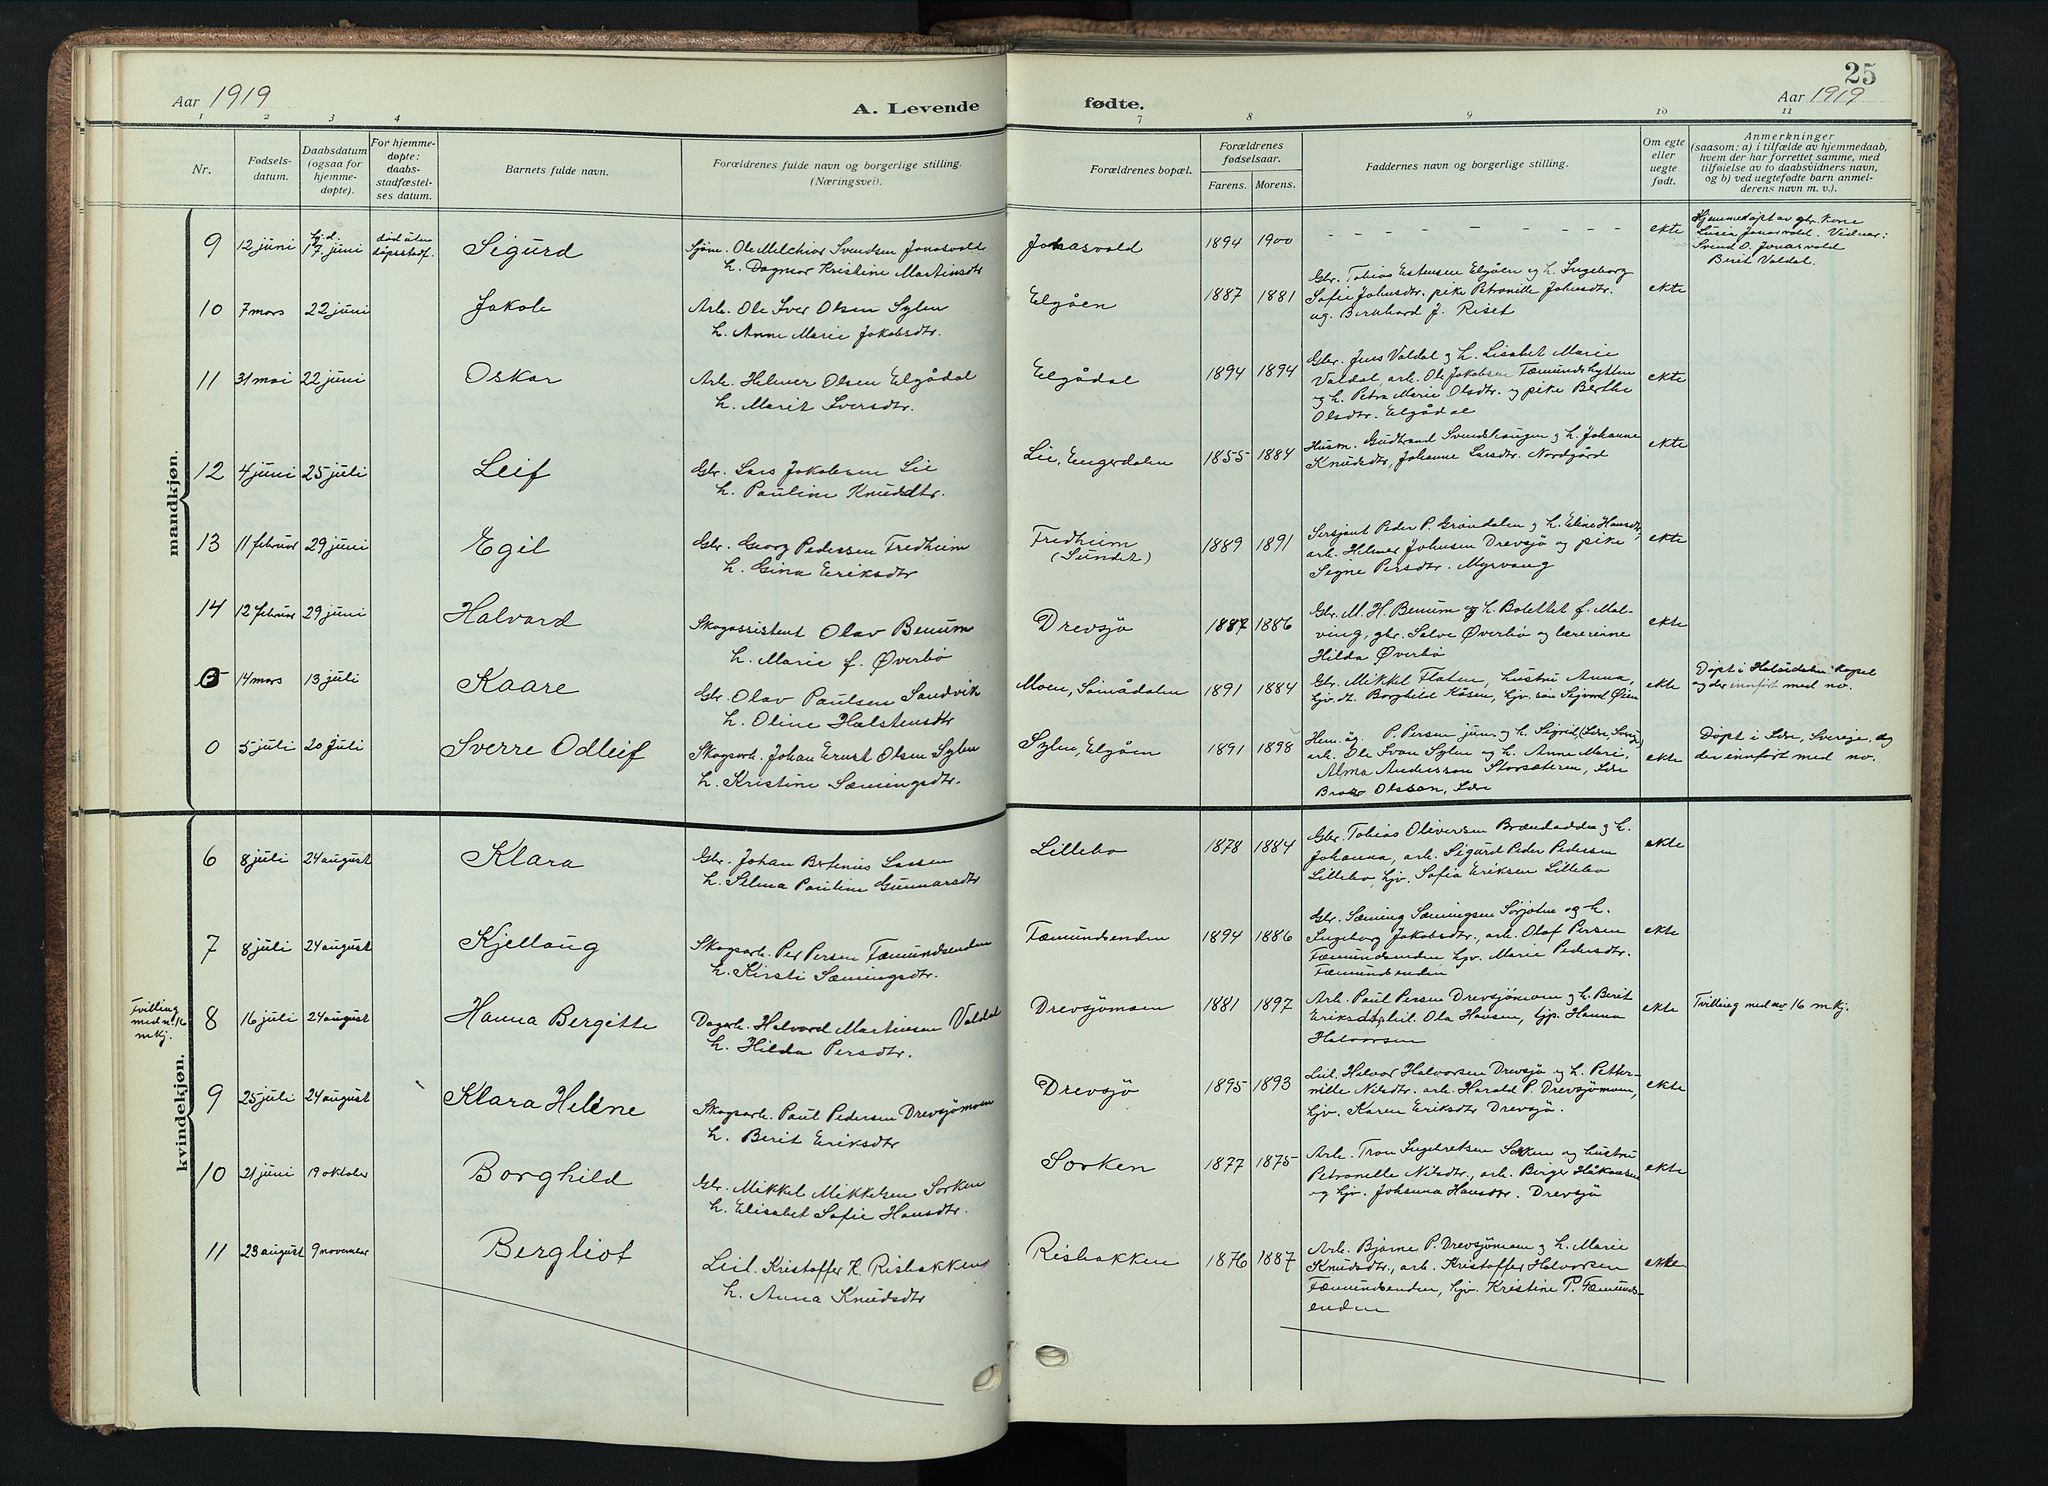 Aar 1919
A. Levende
1 2 3 4
Nr.
Fødsels-
datum.
Daabsdatum
(ogsaa for
hjemme-
døpte).
For hjemme-
døpte:
daabs-
stadfæstel-
ses datum.
Barnets fulde navn.
Forældrenes fulde navn og borgerlige stilling.
(Næringsvei).
mandkjøn.
9 12 juni hj.d. 17 juni død uten dåpsstadf. Sigurd
Ole Melchior Svendsen Jonasvold
h. Dagmar Kristine Martinsdtr
10 7 mars 22 juni Jakob
Arb. Ole Iver Olsen Sylen
h. Anne Marie Jakobsdtr.
11 31 mai 22 juni Oskar
Arb. Helmer Olsen Elgådal
h. Marit Iversdtr.
12 4 juni 25 juli Leif
Gbr. Lars Jakobsen Lie
h. Pauline Knudsdtr.
13 11 februar 29 juni Egil
Gbr. Georg Pedersen Fredheim
h. Gina Eriksdtr
14 12 februar 29 juni Halvard
Skogassistent Olav Benum
h. Marie f. Øverbø
14 mars 13 juli Kaare
Gbr. Olav Paulsen Sandvik
h. Oline Halstensdtr
0 5 juli 20 juli Sverre Odleif
Skogsarb. Johan Ernst Olsen Sylen
h. Kristine Sæmingsdtr.
kvindekjøn.
6 8 juli 24 august Klara
Gbr. Johan Bertinius Lassen
h. Selma Pauline Gunnarsdtr
7 8 juli 24 august Kjellaug
Skogsarb. Per Persen Fæmundsenden
h. Kirsti Sæmingsdtr.
Tvilling
med nr. 16
m.kj.
8 16 juli 24 august Hanna Bergitte
Dagarb. Halvard Martinsen Valdal
h. Hilda Persdtr.
9 25 juli 24 august Klara Helene
Skogsarb. Paul Pedersen Drevsjømoen
h. Berit Eriksdtr
10 21 juni 19 oktober Borghild
Gbr. Mikkel Mikkelsen Sorken
h. Elisabet Sofie Hansdtr.
11 23 august 9 november Bergliot
Leil. Kristoffer K. Risbakken
h. Anna Knudsdtr
25
fødte.
Aar 1919
7 8 9 10 11
Forældrenes bopæl.
Forældrenes
fødselsaar.
Farens. Morens.
Faddernes navn og borgerlige stilling.
Om egte
eller
uegte
født.
Anmerkninger
(saasom: a) i tilfælde av hjemmedaab,
hvem der har forrettet samme, med
tilføielse av to daabsvidners navn,
og b) ved uegtefødte barn anmel-
derens navn m. v.).
Jonasvold 1894 1900 - - - - - - - - - ekte
Hjemmedøpt av gbr. kone
Lusia Jonasvold. Vidner:
Svend O. Jonasvold
Berit Valdal.
Elgåen 1887 1881 ekte
Gbr. Tobias Estensen Elgåen og h. Ingeborg
Sofie Johnsdtr. pike Petronille Johnsdtr.
ug. Bernhard J. Riset
Elgådal 1894 1894 ekte
Gbr. Jens Valdal og h. Lisabet Marie
Valdal, arb. Ole Jakobsen Fæmundshytten
og h. Petra Marie Olsdtr. og pike Berthe
Olsdtr. Elgådal
Lie, Engerdalen 1855 1884 ekte
Husm. Gudbrand Svendshaugen og h. Johanne
Knudsdtr, Johanne Larsdtr. Nordgård
Fredheim
(Sundet) 1889 1891 ekte
Sersjant Peder P. Grøndalen og h. Eline Hansdtr,
arb. Helmer Johnsen Drevsjø og pike
Signe Persdtr. Myrvang
Drevsjø 1887 1886 ekte
Gbr. M. H. Benum og h. Bolettet f. Mal-
ving, gbr. Salve Øverbø og lærerinne
Hilda Øverbø
Moen, Sømådalen 1891 1884 ekte
Gbr. Mikkel Flaten, hustru Anna,
hjv. dt. Borghild Kåsen, hjv. søn Sigvard Øien
Døpt i Holøidalen kapel
og der innført med no.
Sylen, Elgåen 1891 1898 ekte
Hem. äg. P. Persen jun. og h. Sigrid (Idre, Sverige)
arb. Ole Svan Sylen og h. Anne Marie,
Alma Andersson Storsäteren, Idre
Olsson, Idre
Døpt i Idre, Sverige, og
der innført med no.
Lillebo 1878 1884 ekte
Gbr. Tobias Oliversen Brændadden og h.
Johanna, arb. Sigurd Peder Pedersen
Lillebo, hjv. Sofia Eriksen Lillebo
Fæmundsenden 1894 1886 ekte
Gbr. Sæming Sæmingsen Sorjoten og h.
Ingeborg Jakobsdtr., arb. Olaf Persen
Fæmundsenden hjv. Marie Pedersdtr.
Fæmundsenden
Drevsjømoen 1881 1897 ekte
Arb. Paul Persen Drevsjømoen og h. Berit
Eriksdtr, leil. Ola Hansen, tjp. Hanna
Halvorsen
Tvilling med nr 16 m.kj.
Drevsjø 1895 1893 ekte
Leil. Halvor Halvorsen Drevsjø og h. Petter-
nille Nilsdtr. arb. Harald P. Drevsjømoen,
hjv. Karen Eriksdtr Drevsjø.
Sorken 1877 1875 ekte
Arb. Tron Ingebretsen Sorken og hustru
Petronelle Nilsdtr, arb. Birger Håkansen
og hjv. Johanna Hansdtr. Drevsjø
Risbakken 1876 1887 ekte
Arb. Bjarne P. Drevsjømoen og h. Marie
Knudsdtr., arb. Kristoffer Halvorsen
Fæmundsenden, hjv. Kristine P. Fæmunds-
enden